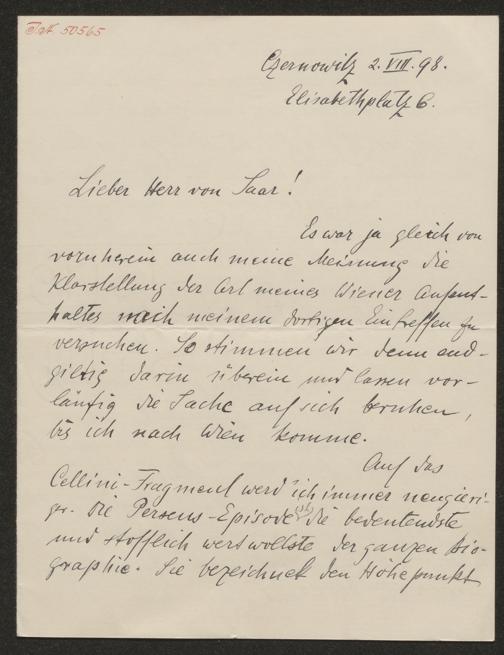 50565
Czernowitz 2.VIII.98.
Elisabethplatz 6.
Lieber Herr von Saar!
Es war ja gleich von
vornherein auch meine Meinung die
Klarstellung der Art meines Wiener Aufent-
haltes nach meinem dortigen Eintreffen zu
versuchen. So stimmen wir denn end-
giltig darin überein und lassen vor-
läufig die Sache auf sich beruhen,
bis ich nach Wien komme.
Auf das
Cellini-Fragment werd' ich immer neugieri-
ger. Die Perseus-Episode ist die bedeutendste
und stofflich wertvollste der ganzen Bio-
graphie. Sie bezeichnet den Höhepunkt